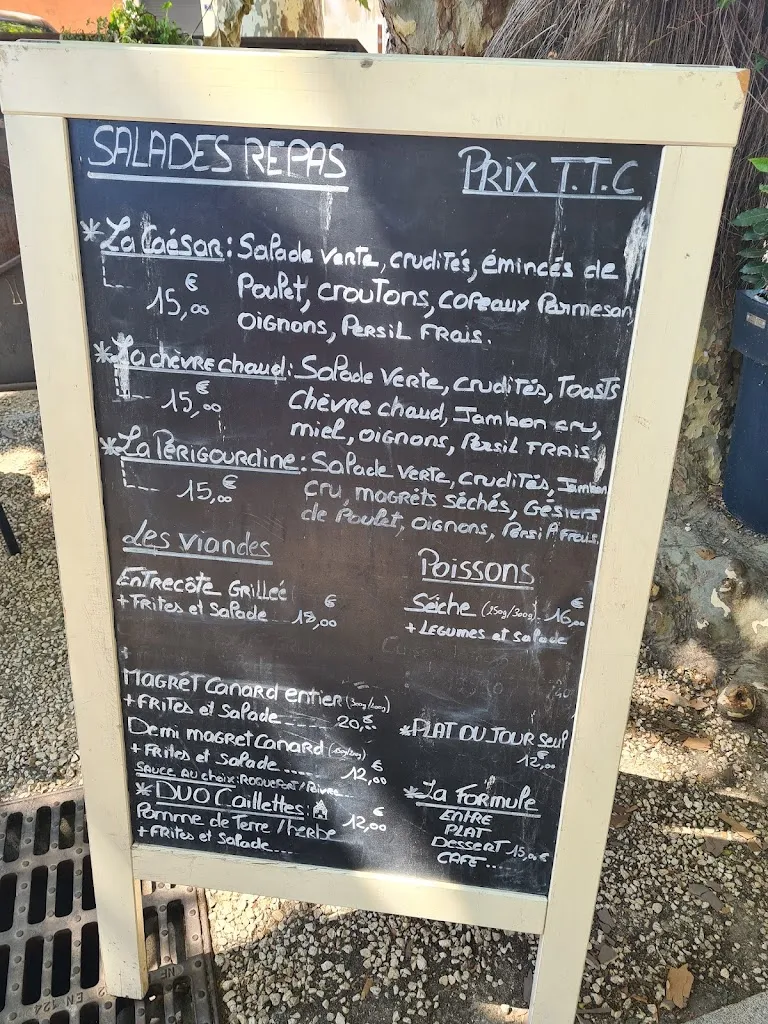 SALADES REPAS
PRIX T.T.C
* La Caésar: Salade verte, crudités, émincés de
15,00 € Poulet, croutons, copeaux Parmesan,
oignons, Persil Frais.
* La chèvre chaud: Salade verte, crudités, Toasts
15,00 € Chèvre chaud, Jambon cru,
miel, oignons, Persil Frais
* La Périgourdine: Salade verte, crudités, Jambon
15,00 € cru, magrets séchés, Gésiers
de Poulet, oignons, Persil Frais.
Les viandes
Entrecôte Grilleé
+ Frites et Salade 18,00 €
Poissons
Séiche (250g/300g) 16,00 €
+ Légumes et salade
Magret Canard entier
+ Frites et Salade 20,00 €
Demi magret Canard
+ Frites et Salade 12,00
Sauce au choix: Roquefort/Poivre
* DUO Caillettes:
Pomme de Terre / herbe 12,00 €
+ Frites et Salade
* PLAT DU JOUR seul
12,00 €
* La Formule
ENTRE
PLAT
Dessert 15,00 €
CAFE...
EN 124